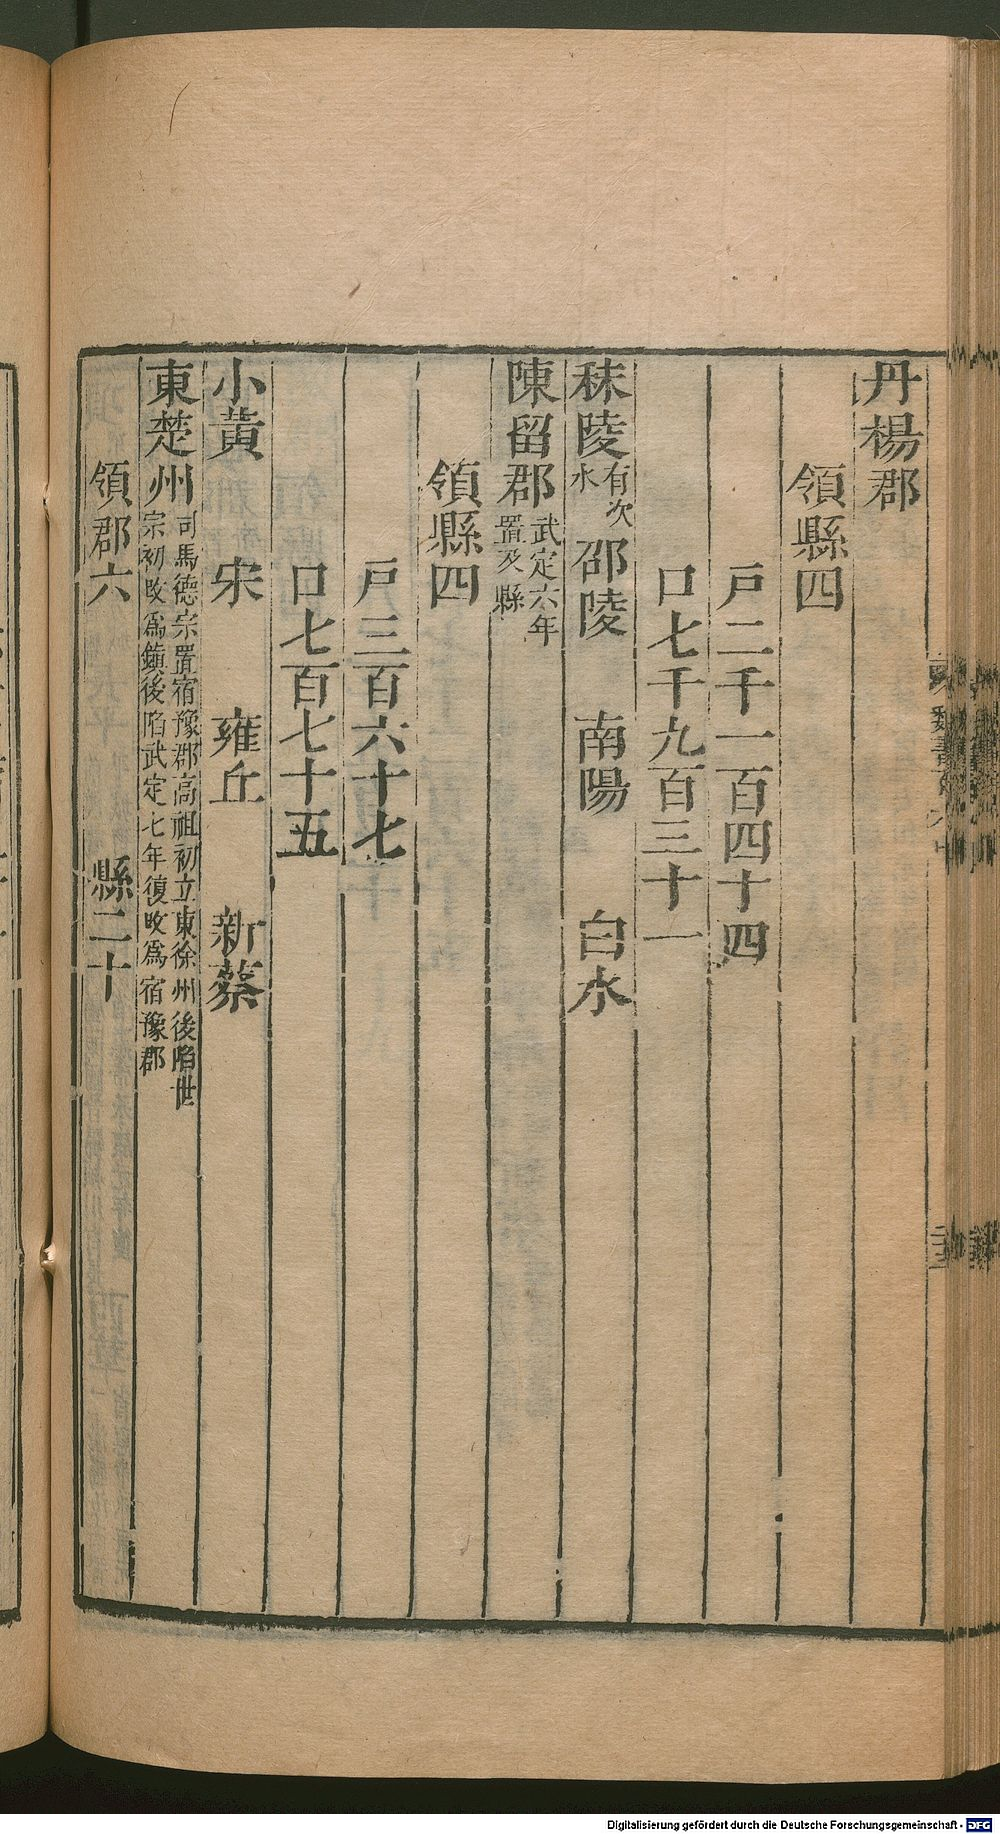 丹楊郡
領縣四
戸二千一百四十四
口七千九百三十一
秣陵有次水 邵陵 南陽 白水
陳留郡武定六年置及縣
領縣四
戸三百六十七
口七百七十五
小黃 宋 雍丘 新蔡
東楚州司馬德宗置宿豫郡高祖初立東徐州後陷世宗初改爲鎮後陷武定七年復改爲宿豫郡
領郡六 縣二十
Digitalisierung gefördert durch die Deutsche Forschungsgemeinschaft - DFG